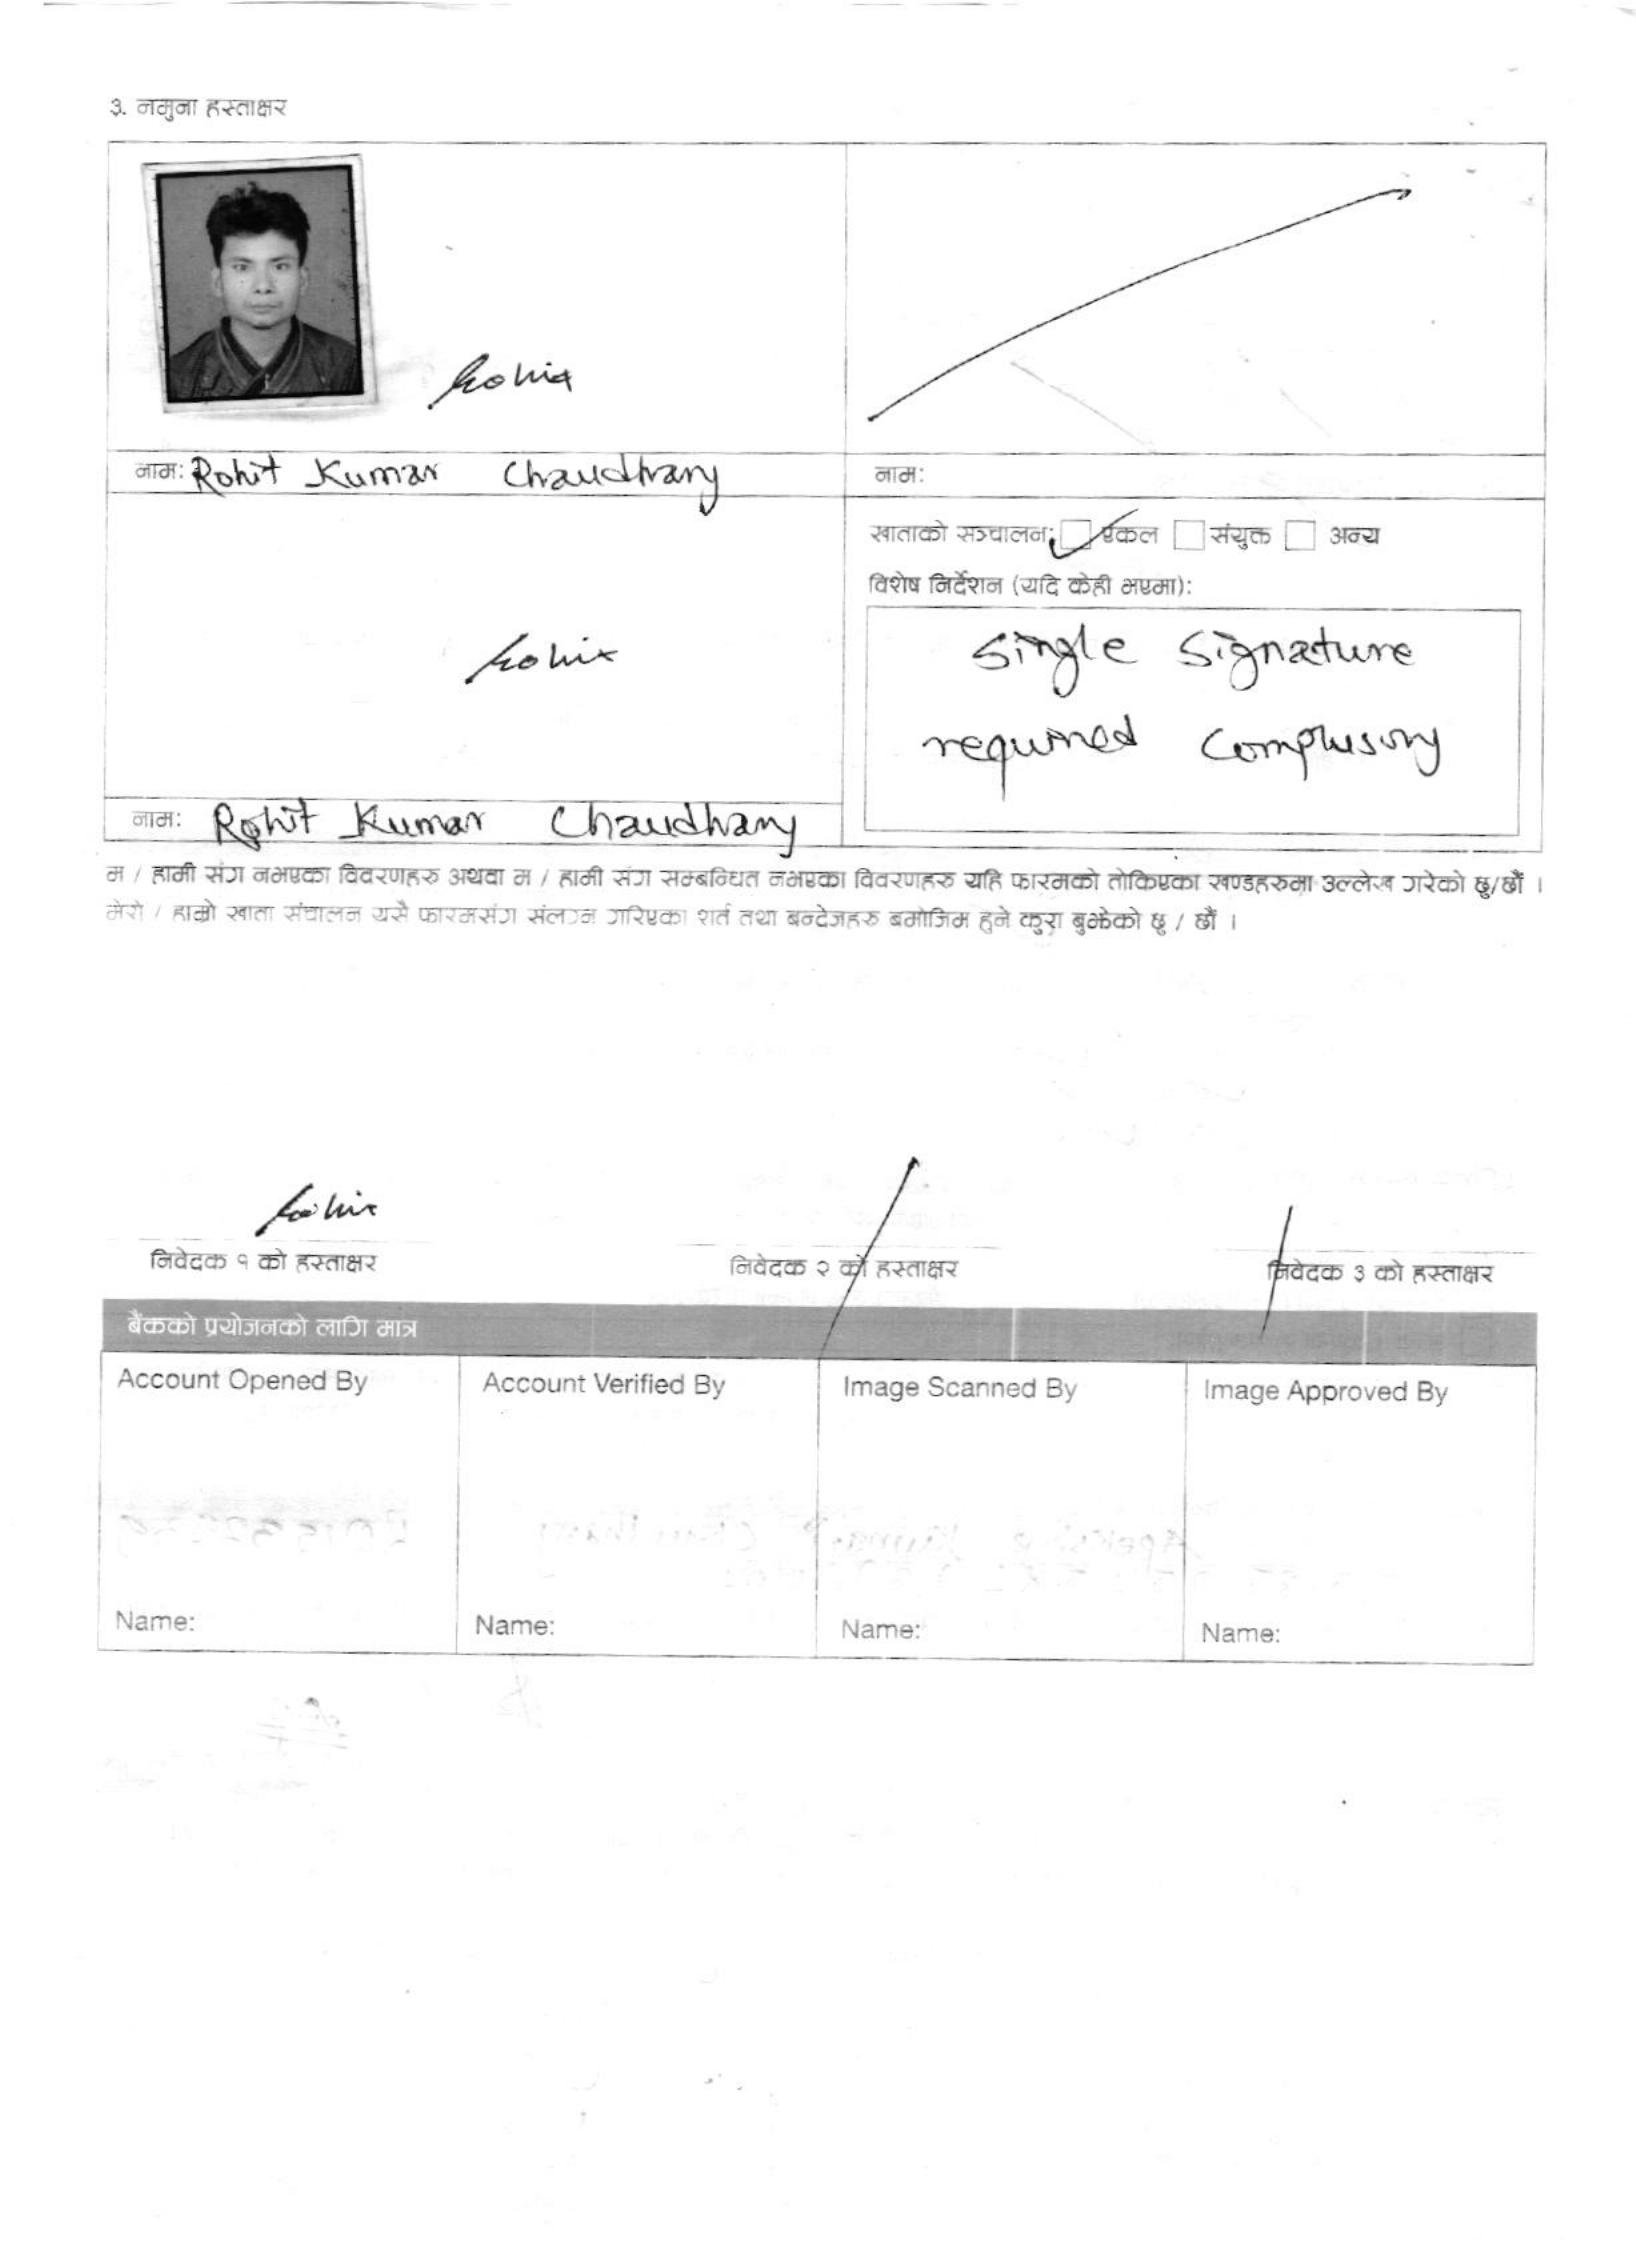 ३. नमुना हस्ताक्षर
Rohit
नाम: Rohit Kumar Chaudhary
नाम:
खाताको सञ्चालन: एकल संयुक्त अन्य
विशेष निर्देशन (यदि केही भएमा):
Single Signature
required Complusory
Rohit
नाम: Rohit Kumar Chaudhary
म / हामी संग नभएका विवरणहरु अथवा म / हामी संग सम्बन्धित नभएका विवरणहरु यहि फारमको तोकिएका खण्डहरुमा उल्लेख गरेको छु/छौं ।
मेरो / हाम्रो खाता संचालन यसै फारमसंग संलग्न गरिएका शर्त तथा बन्देजहरु बमोजिम हुने कुरा बुझेको छु / छौं ।
Rohit
निवेदक १ को हस्ताक्षर निवेदक २ को हस्ताक्षर निवेदक ३ को हस्ताक्षर
बैंकको प्रयोजनको लागि मात्र
Account Opened By Account Verified By Image Scanned By Image Approved By
Name: Name: Name: Name: